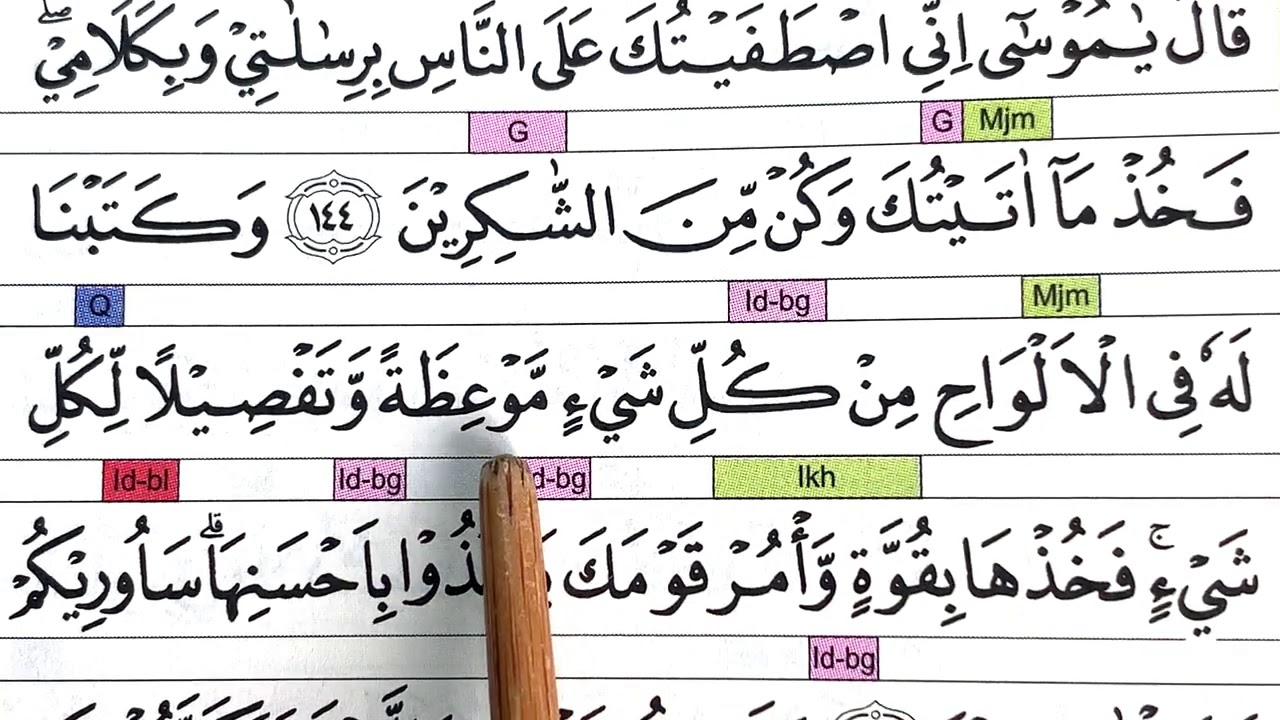 قَالَ يٰمُوْسٰٓى اِنِّي اصْطَفَيْتُكَ عَلَى النَّاسِ بِرِسٰلٰتِيْ وَبِكَلَامِيْ ۖ
G Mjm G
فَخُذْ مَآ اٰتَيْتُكَ وَكُنْ مِّنَ الشّٰكِرِيْنَ ١٤٤ وَكَتَبْنَا
Mjm Id-bg Q
لَهٗ فِى الْاَلْوَاحِ مِنْ كُلِّ شَيْءٍ مَّوْعِظَةً وَّتَفْصِيْلًا لِّكُلِّ
Ikh Id-bg Id-bl
شَيْءٍ ۚ فَخُذْهَا بِقُوَّةٍ وَّأْمُرْ قَوْمَكَ بِاَحْسَنِهَا ۗ سَاُورِيْكُمْ
Id-bg